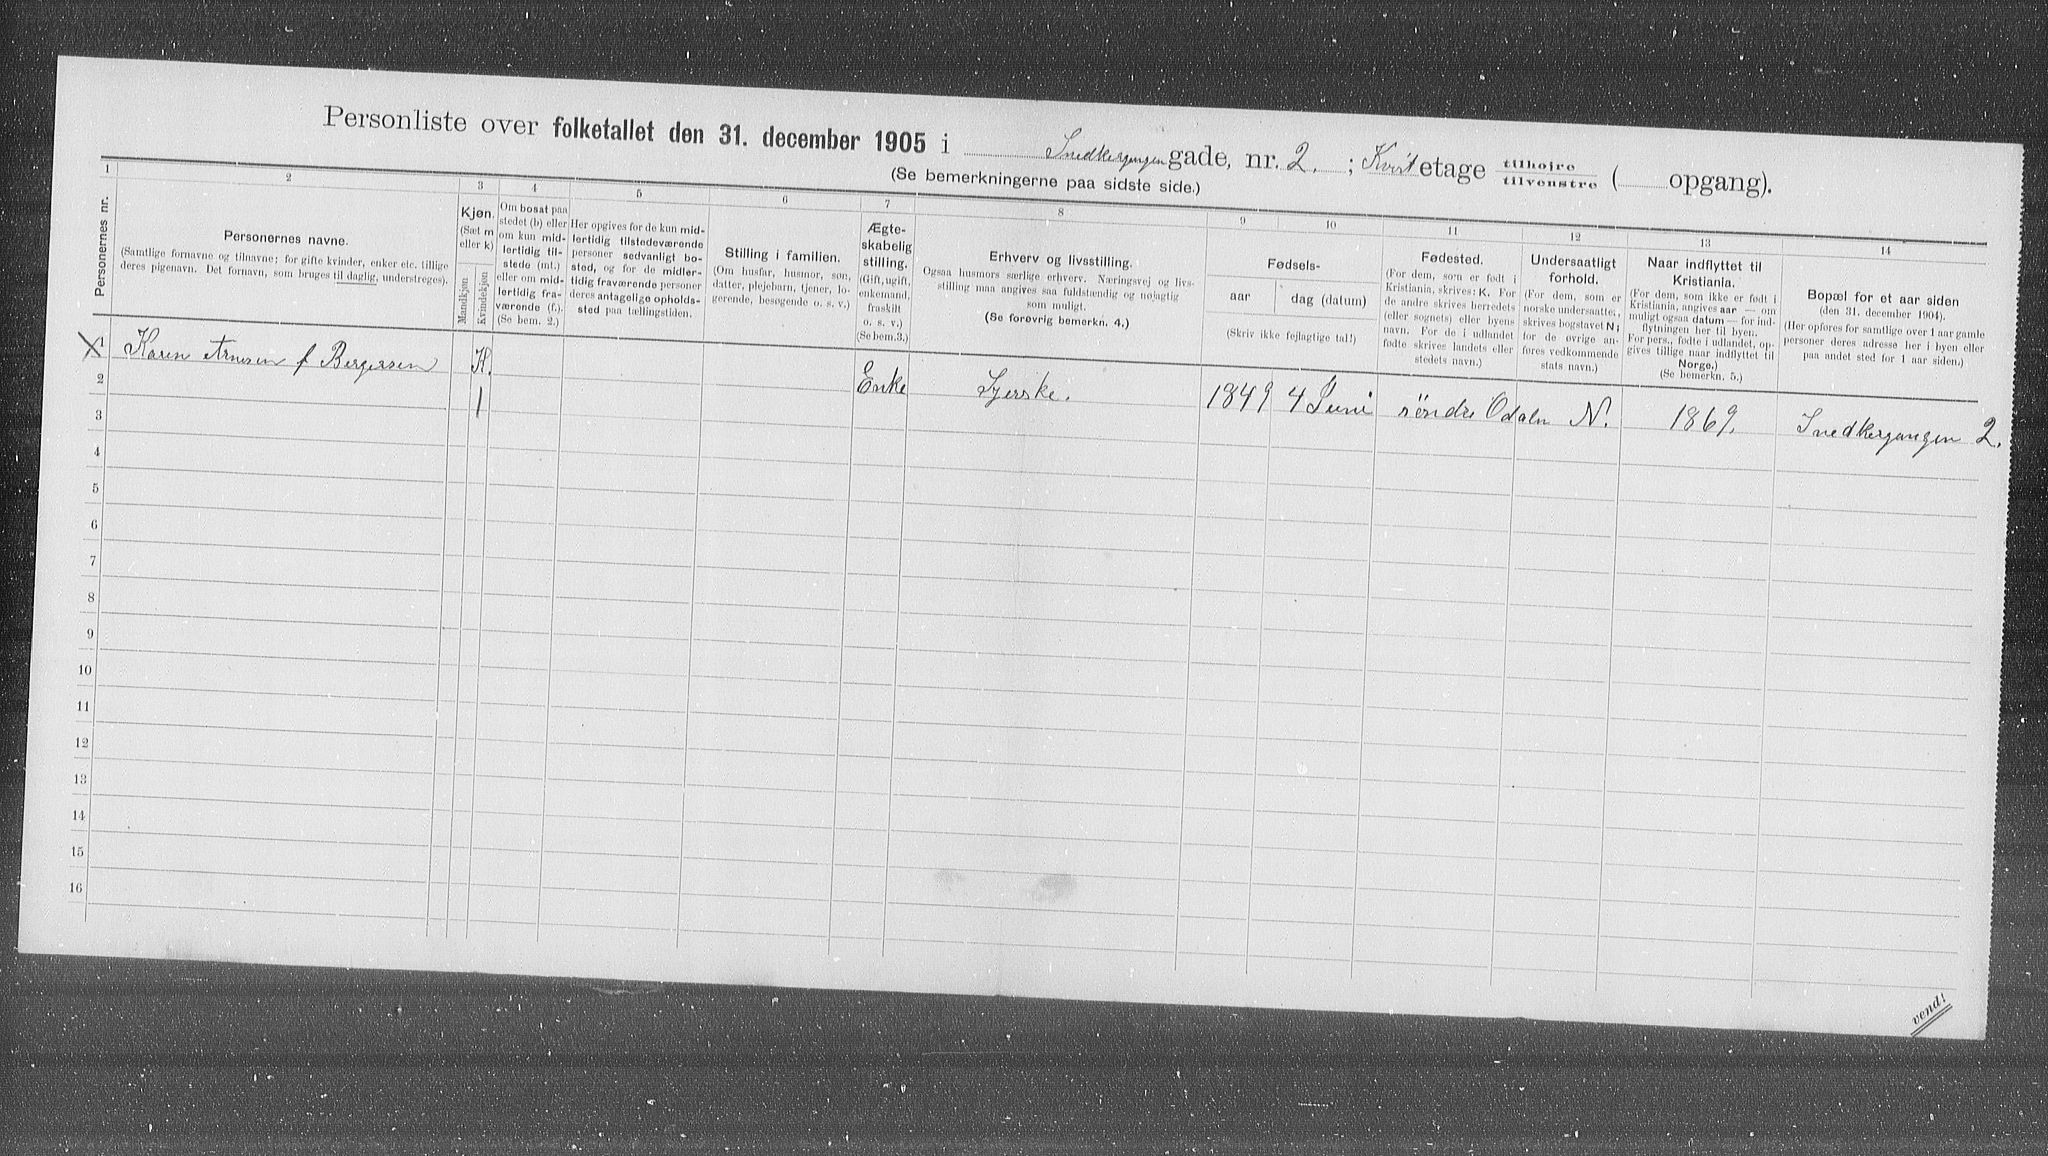 Personliste over folketallet den 31. december 1905 i Snedkergangen gade, nr. 2. ; Kvist etage tilhøire tilvenstre ( opgang).
(Se bemerkningerne paa sidste side.)
1 2 3 4 5 6 7 8 9 10 11 12 13 14
Personernes nr.
Personernes navne.
(Samtlige fornavne og tilnavne; for gifte kvinder, enker etc. tillige
deres pigenavn. Det fornavn, som bruges til daglig, understreges).
Kjøn.
(Sæt m
eller k)
Mandkjøn
Kvindekjøn
Om bosat paa
stedet (b) eller
om kun mid-
lertidig til-
stede (mt.)
eller om mid-
lertidig fra-
værende (f.).
(Se bem. 2.)
Her opgives for de kun mid-
lertidig tilstedeværende
personer sedvanligt bo-
sted, og for de midler-
tidig fraværende personer
deres antagelige opholds-
sted paa tællingstiden.
Stilling i familien.
(Om husfar, husmor, søn,
datter, plejebarn, tjener, lo-
gerende, besøgende o. s. v.)
Ægte-
skabelig
stilling.
(Gift, ugift,
enkemand,
fraskilt
o. s. v.)
(Se bem. 3.)
Erhverv og livsstilling.
Ogsaa husmors særlige erhverv. Næringsvej og livs-
stilling maa angives saa fuldstændig og nøjagtig
som muligt.
(Se forøvrig bemerkn. 4.)
Fødsels-
aar dag (datum)
(Skriv ikke fejlagtige tal!)
Fødested.
(For dem, som er født i
Kristiania, skrives: K. For
de andre skrives herredets
(eller sognets) eller byens
navn. For de i udlandet
fødte skrives landets eller
stedets navn.)
Undersaatligt
forhold.
(For dem, som er
norske undersaatter,
skrives bogstavet N;
for de øvrige an-
føres vedkommende
stats navn.)
Naar indflyttet til
Kristiania.
(For dem, som ikke er født i
Kristiania, angives aar — om
muligt ogsaa datum — for ind-
flytningen her til byen.
For pers., fødte i udlandet, op-
gives tillige naar indflyttet til
Norge.)
(Se bemerkn. 5.)
Bopæl for et aar siden
(den 31. december 1904).
(Her opføres for samtlige over 1 aar gamle
personer deres adresse her i byen eller
paa andet sted for 1 aar siden.)
1 Karen Arnesen f Bergersen K. Enke Syerske. 1849 4 Juni søndre Odalen N. 1869. Snedkergangen 2.
2 1
3
4
5
6
7
8
9
10
11
12
13
14
15
16
vend!